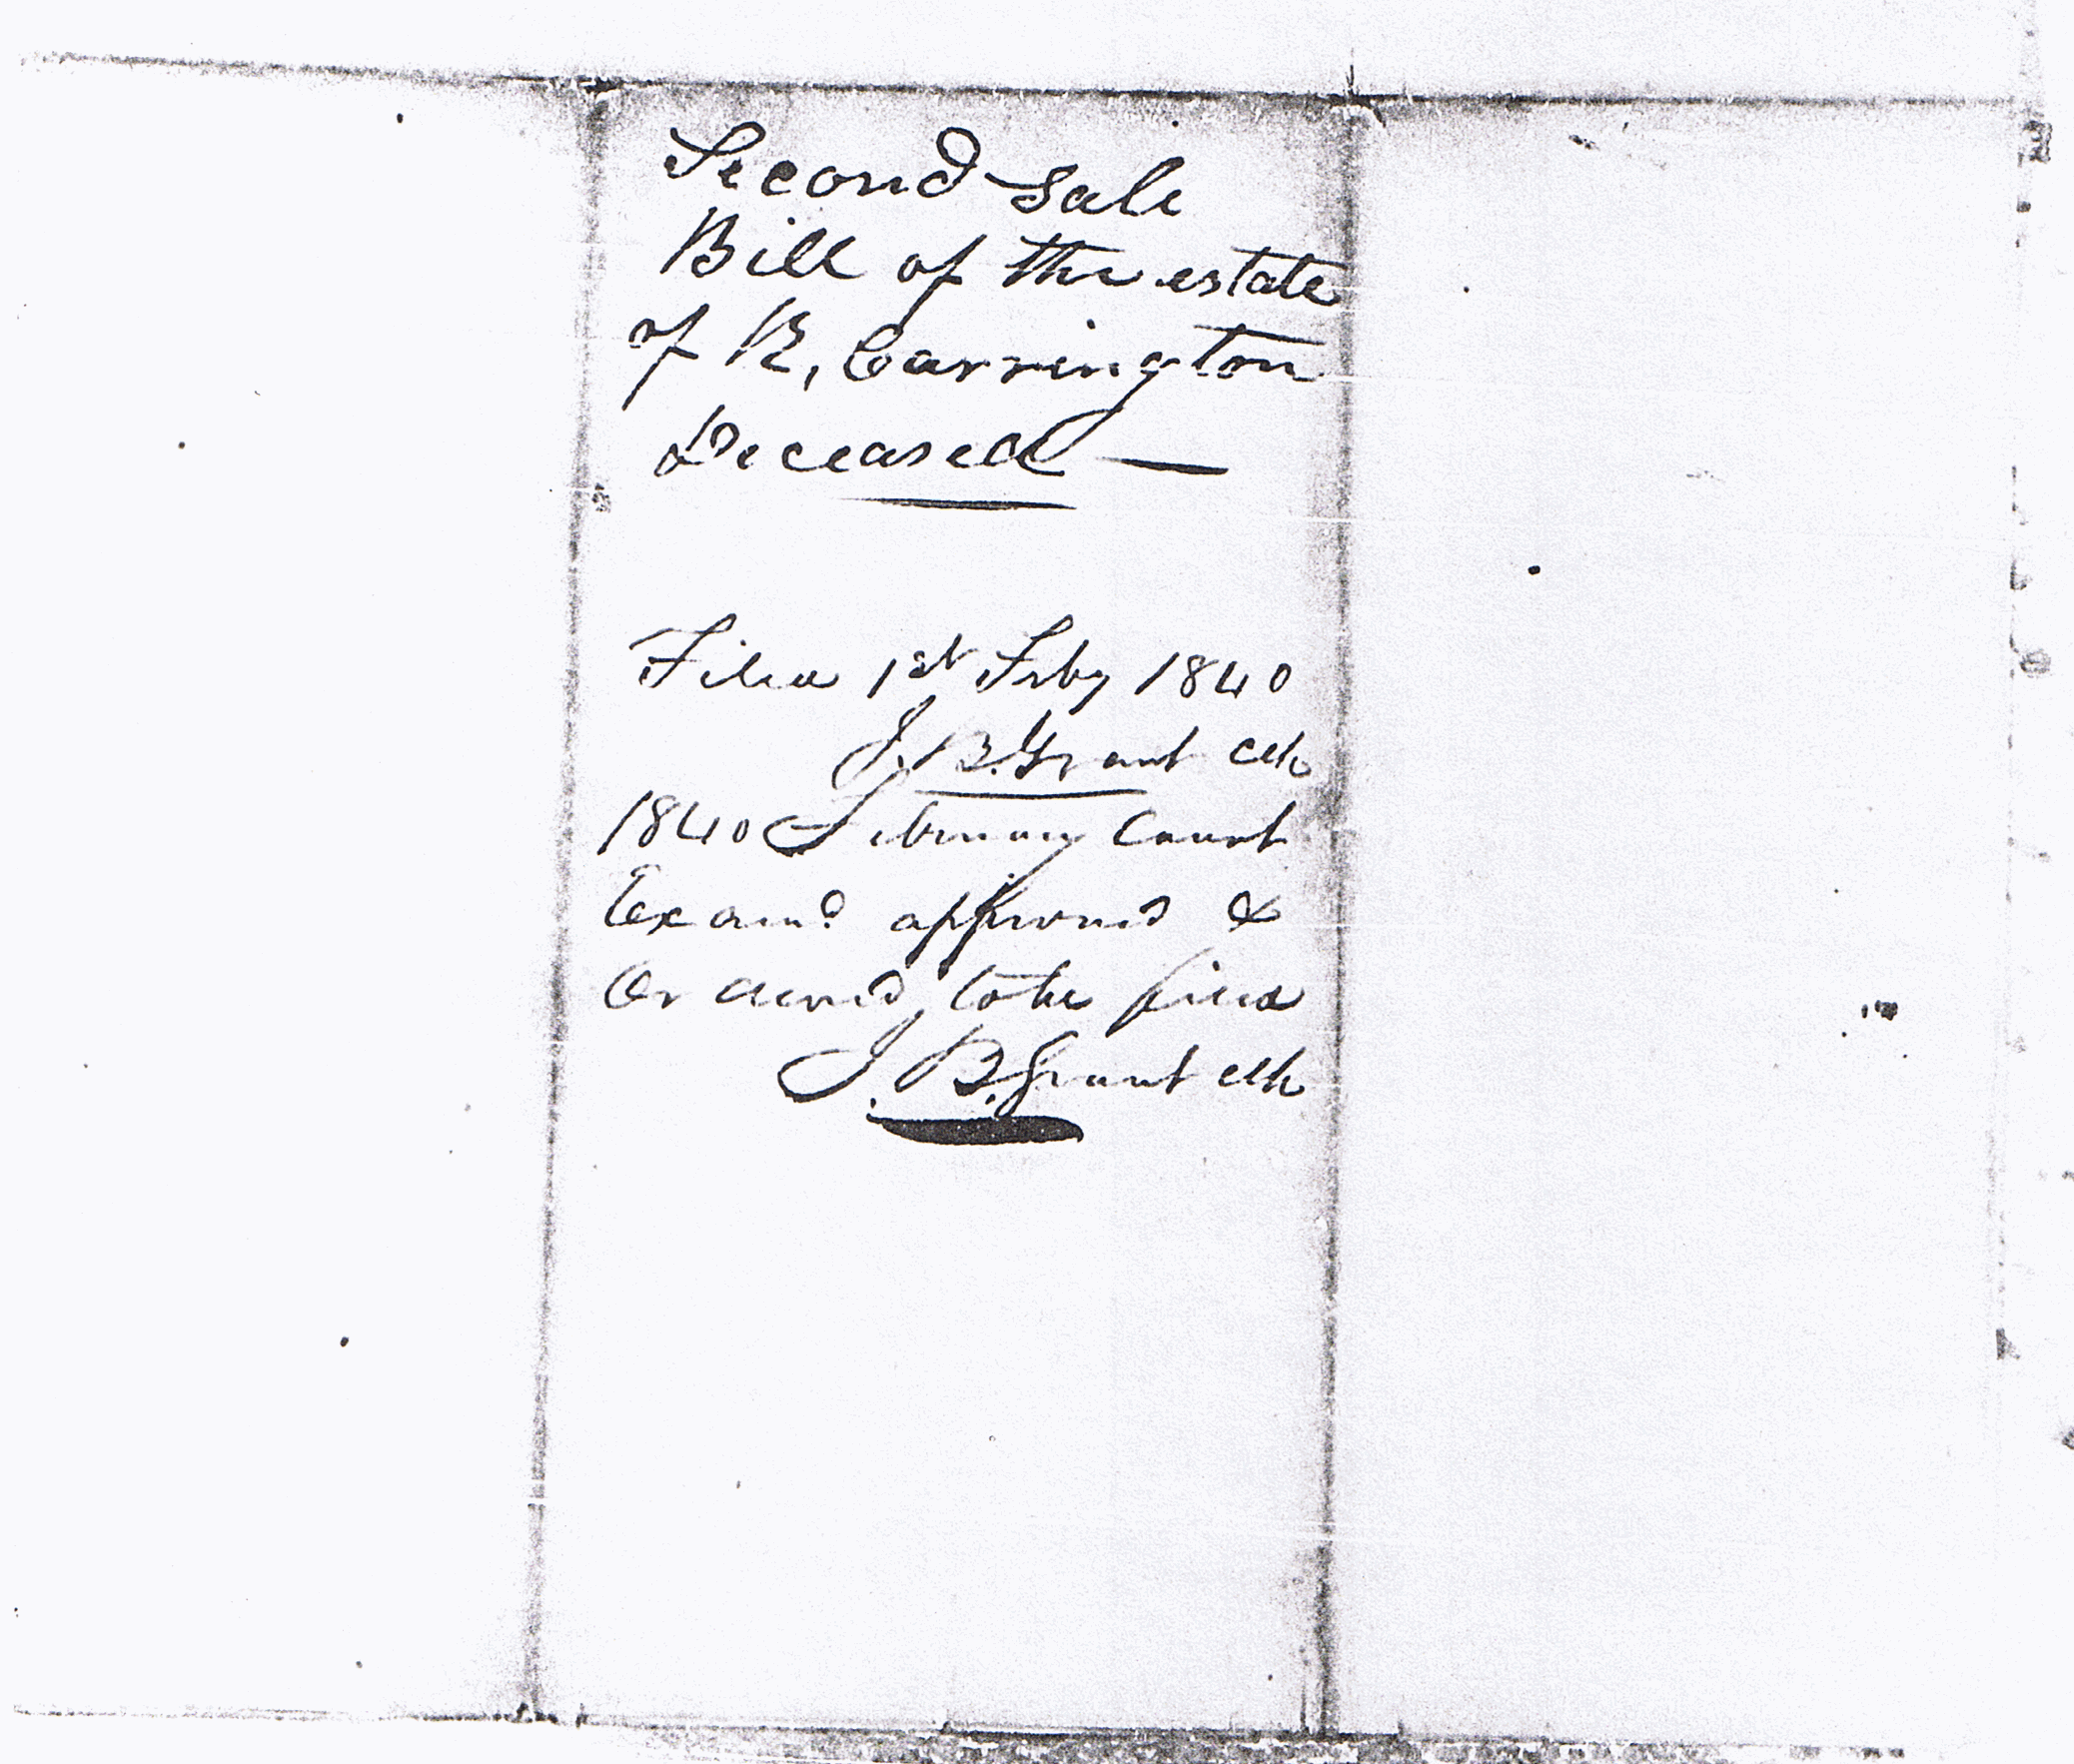 Second sale
Bill of the estate
of R, Carrington
Deceased —
Filed 1st Feby 1840
J. B. Grant Clk
1840 February Court
Examd approved &
Ordered to be filed
J. B. Grant Clk